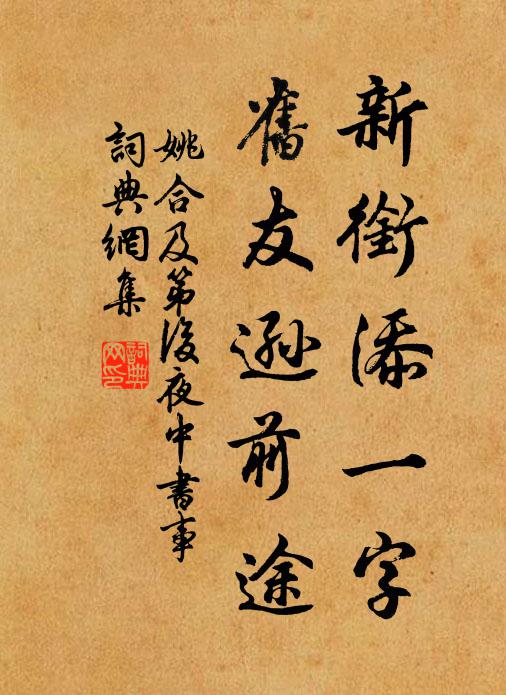 新銜添一字
舊友遜前途
姚合及第後夜中書事
詞典網集
詞典網印